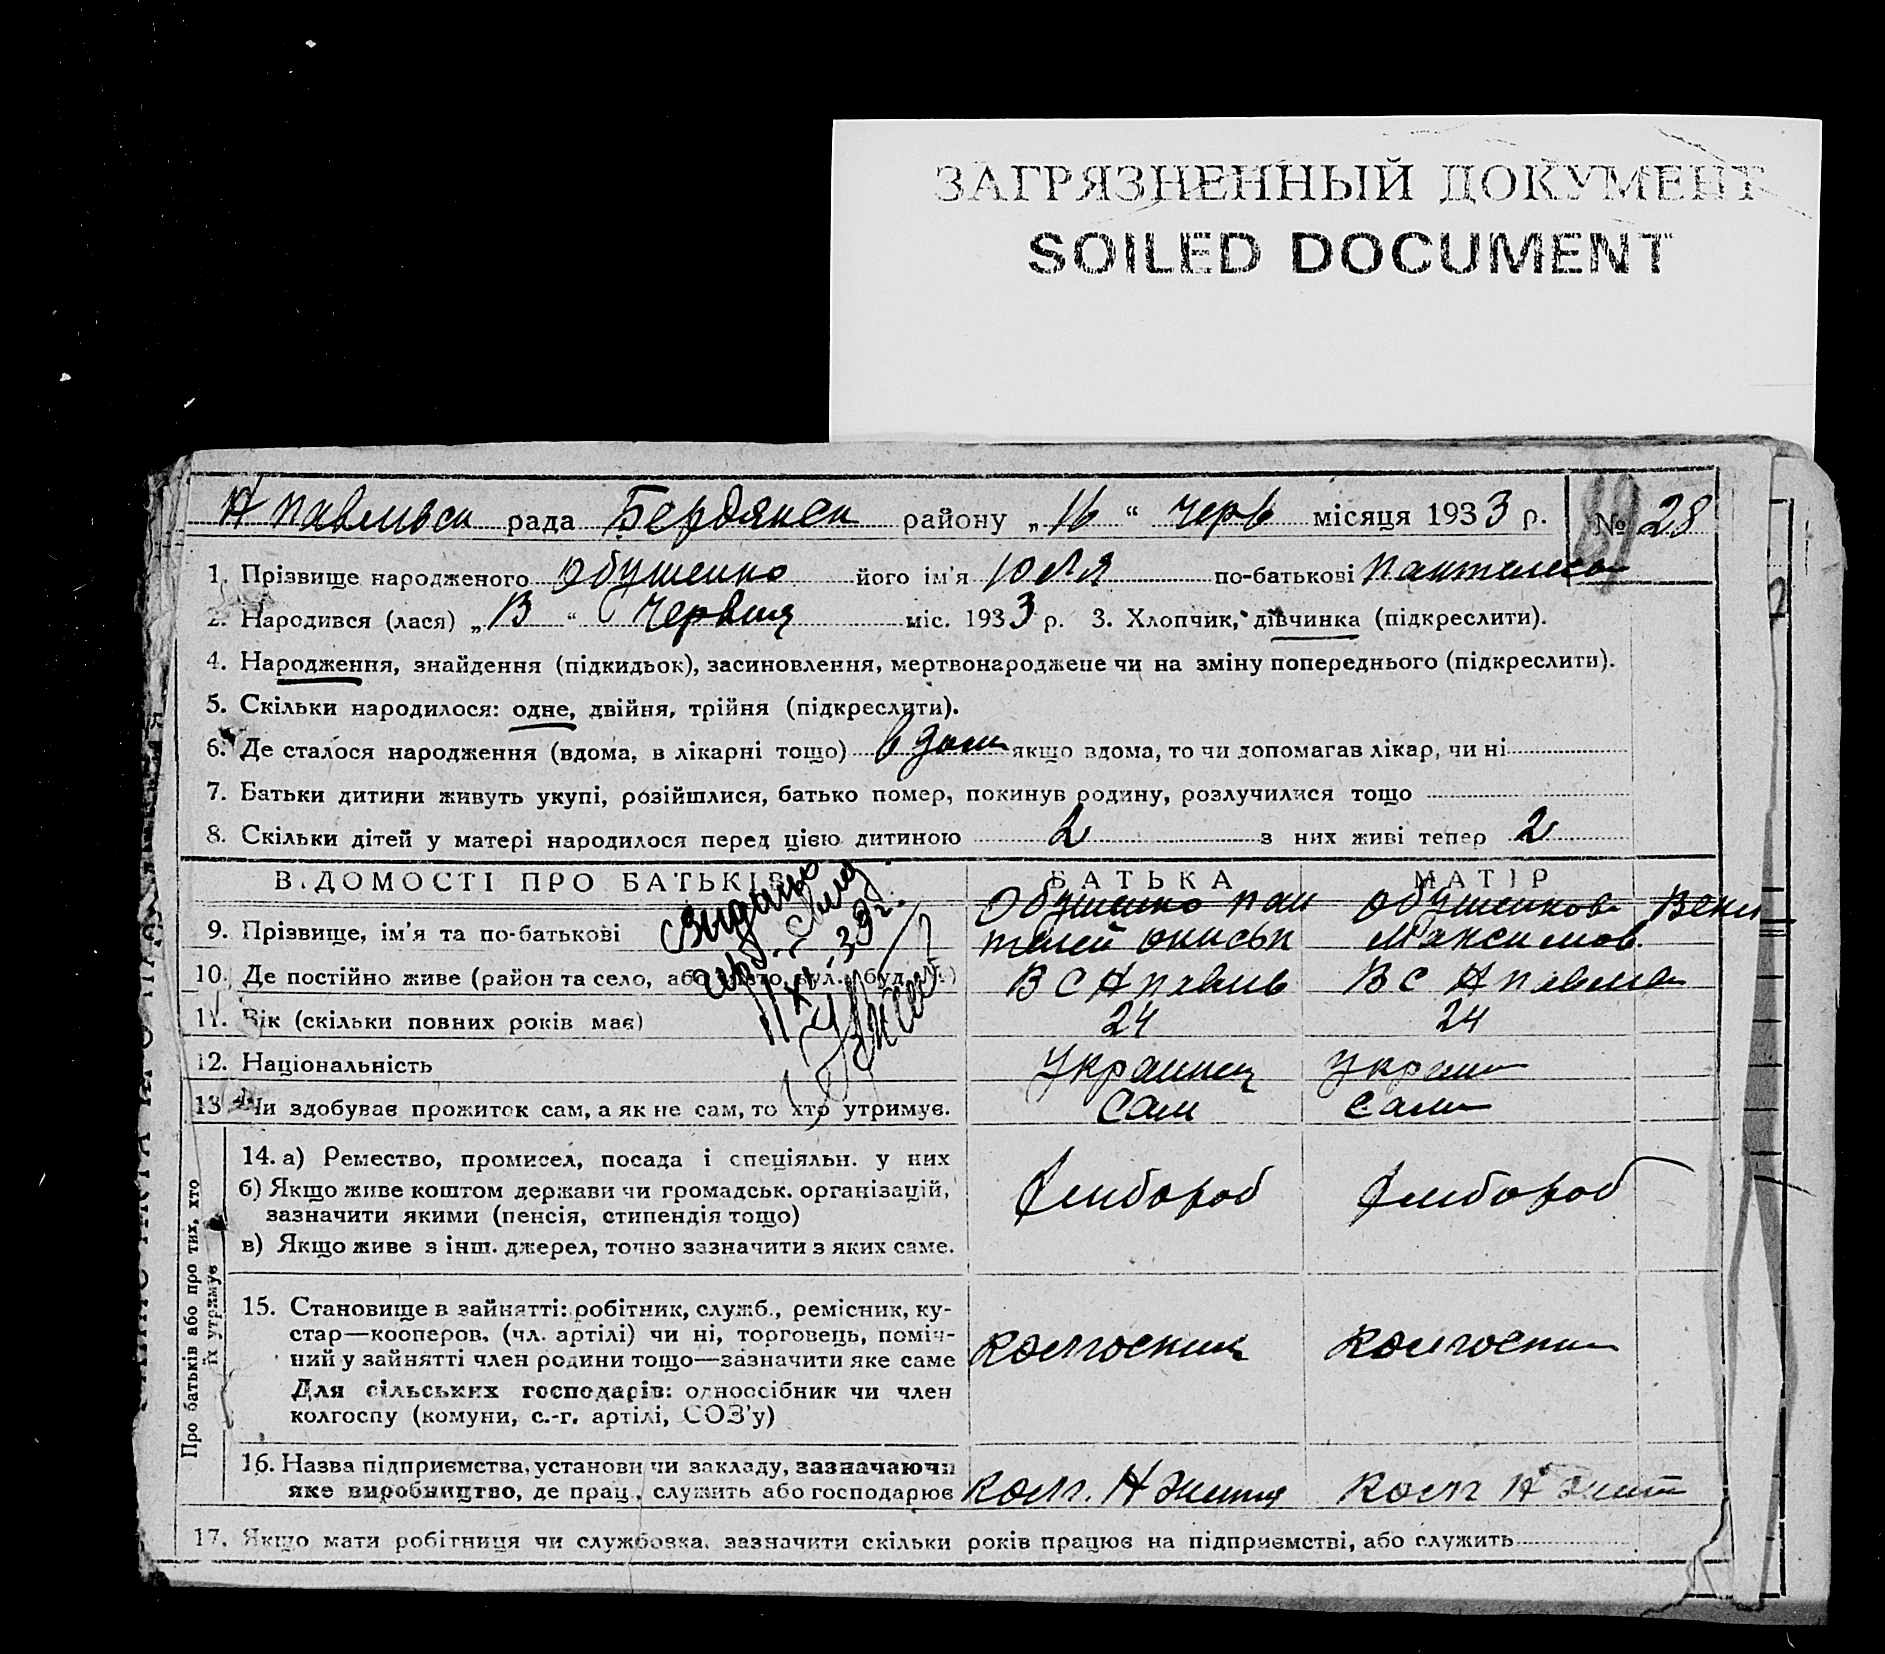 ЗАГРЯЗНЕННЫЙ ДОКУМЕНТ
SOILED DOCUMENT
рада Бердянск району „16“ черв місяця 1933 р. № 28
1. Прізвище народженого Обушенко його ім'я Юля по-батькові
2. Народився (лася) „13“ Червня міс. 1933 р. 3. Хлопчик, дівчинка (підкреслити).
4. Народження, знайдення (підкидьок), засиновлення, мертвонароджене чи на зміну попереднього (підкреслити).
5. Скільки народилося: одне, двійня, трійня (підкреслити).
6. Де сталося народження (вдома, в лікарні тощо) якщо вдома, то чи допомагав лікар, чи ні
7. Батьки дитини живуть укупі, розійшлися, батько помер, покинув родину, розлучилися тощо
8. Скільки дітей у матері народилося перед цією дитиною 2 з них живі тепер 2
ВІДОМОСТІ ПРО БАТЬКІВ БАТЬКА МАТІР
9. Прізвище, ім'я та по-батькові Обушенко Пан Обушенкова
телей Максимов
10. Де постійно живе (район та село, або місто, вул., буд. №) В С Н В С Н
11. Вік (скільки повних років має) 24 24
12. Національність Украинец Украин
13 Чи здобуває прожиток сам, а як не сам, то хто утримує. Сам Сам
Про батьків або про тих, хто
їх утримує
14. а) Ремество, промисел, посада і спеціяльн. у них
б) Якщо живе коштом держави чи громадськ. організацій,
зазначити якими (пенсія, стипендія тощо)
в) Якщо живе з інш. джерел, точно зазначити з яких саме.
15. Становище в зайнятті: робітник, служб., ремісник, ку-
стар—кооперов. (чл. артілі) чи ні, торговець, поміч-
ний у зайнятті член родини тощо—зазначити яке саме колгосник колгосни
Для сільських господарів: одноосібник чи член
колгоспу (комуни, с.-г. артілі, СОЗ'у)
16. Назва підприємства, установи чи закладу, зазначаючи
яке виробництво, де прац., служить або господарює колг. Н Життя колг Н Житт
17. Якщо мати робітниця чи службовка, зазначити скільки років працює на підприємстві, або служить